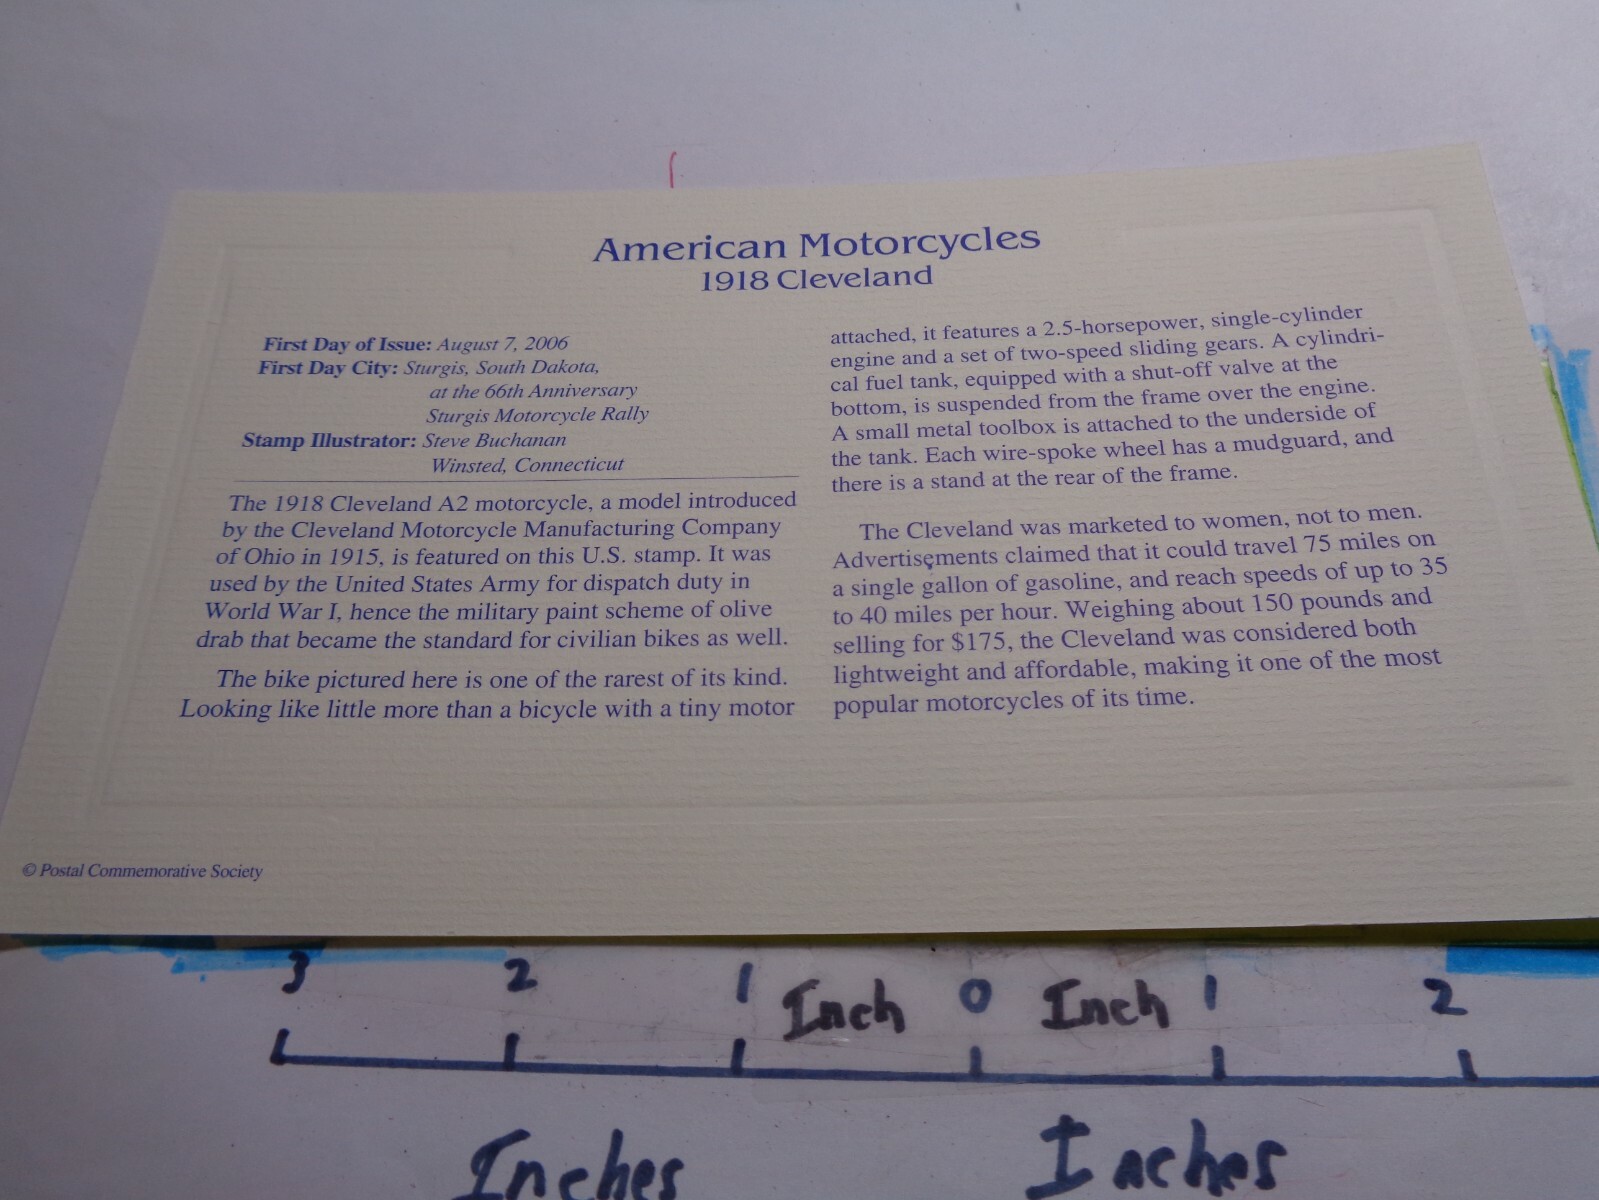 American Motorcycles
1918 Cleveland
First Day of Issue: August 7, 2006
First Day City: Sturgis, South Dakota,
at the 66th Anniversary
Sturgis Motorcycle Rally
Stamp Illustrator: Steve Buchanan
Winsted, Connecticut
The 1918 Cleveland A2 motorcycle, a model introduced
by the Cleveland Motorcycle Manufacturing Company
of Ohio in 1915, is featured on this U.S. stamp. It was
used by the United States Army for dispatch duty in
World War I, hence the military paint scheme of olive
drab that became the standard for civilian bikes as well.
The bike pictured here is one of the rarest of its kind.
Looking like little more than a bicycle with a tiny motor
attached, it features a 2.5-horsepower, single-cylinder
engine and a set of two-speed sliding gears. A cylindri-
cal fuel tank, equipped with a shut-off valve at the
bottom, is suspended from the frame over the engine.
A small metal toolbox is attached to the underside of
the tank. Each wire-spoke wheel has a mudguard, and
there is a stand at the rear of the frame.
The Cleveland was marketed to women, not to men.
Advertisements claimed that it could travel 75 miles on
a single gallon of gasoline, and reach speeds of up to 35
to 40 miles per hour. Weighing about 150 pounds and
selling for $175, the Cleveland was considered both
lightweight and affordable, making it one of the most
popular motorcycles of its time.
© Postal Commemorative Society
3 2 1 Inch 0 Inch 1 2
Inches Inches